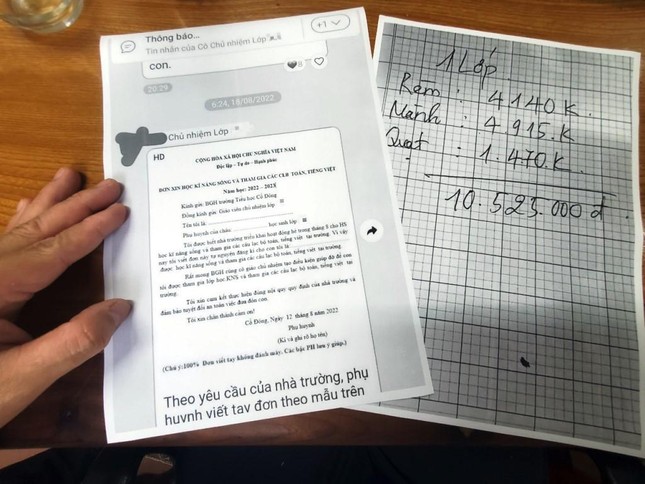 Thông báo...
Tin nhắn của Cô Chủ nhiệm Lớp
+1
con.
8
20:29
6:24, 18/08/2022
Chủ nhiệm Lớp
HD
CỘNG HÒA XÃ HỘI CHỦ NGHĨA VIỆT NAM
Độc lập - Tự do - Hạnh phúc
ĐƠN XIN HỌC KĨ NĂNG SỐNG VÀ THAM GIA CÁC CLB TOÁN, TIẾNG VIỆT
Năm học: 2022 – 2023
Kính gửi: BGH trường Tiểu học Cổ Đông
Đồng kính gửi: Giáo viên chủ nhiệm lớp
Tên tôi là:
Phụ huynh của cháu: học sinh lớp:
Tôi được biết nhà trường triển khai hoạt động hè trong tháng 8 cho HS
học kĩ năng sống và tham gia các câu lạc bộ toán, tiếng việt tại trường. Vì vậy
nay tôi viết đơn này tự nguyện đăng kí cho con tôi là
được học kĩ năng sống và tham gia các câu lạc bộ toán, tiếng việt tại trường.
Rất mong BGH cùng cô giáo chủ nhiệm tạo điều kiện giúp đỡ để con
tôi được tham gia lớp học KNS và tham gia các câu lạc bộ toán, tiếng việt tại
trường.
Tôi xin cam kết thực hiện đúng nội quy quy định của nhà trường và
đảm bảo tuyệt đối an toàn việc đưa đón con.
Tôi xin chân thành cảm ơn!
Cổ Đông, Ngày 12 tháng 8 năm 2022
Phụ huynh
(Kí và ghi rõ họ tên)
(Chú ý:100% Đơn viết tay không đánh máy. Các bậc PH lưu ý giúp.)
Theo yêu cầu của nhà trường, phụ
huynh viết tay đơn theo mẫu trên
1 Lớp
Rèm : 4140 K.
Mành : 4.915.K
Quạt : 1.470.K
10.525.000 đ